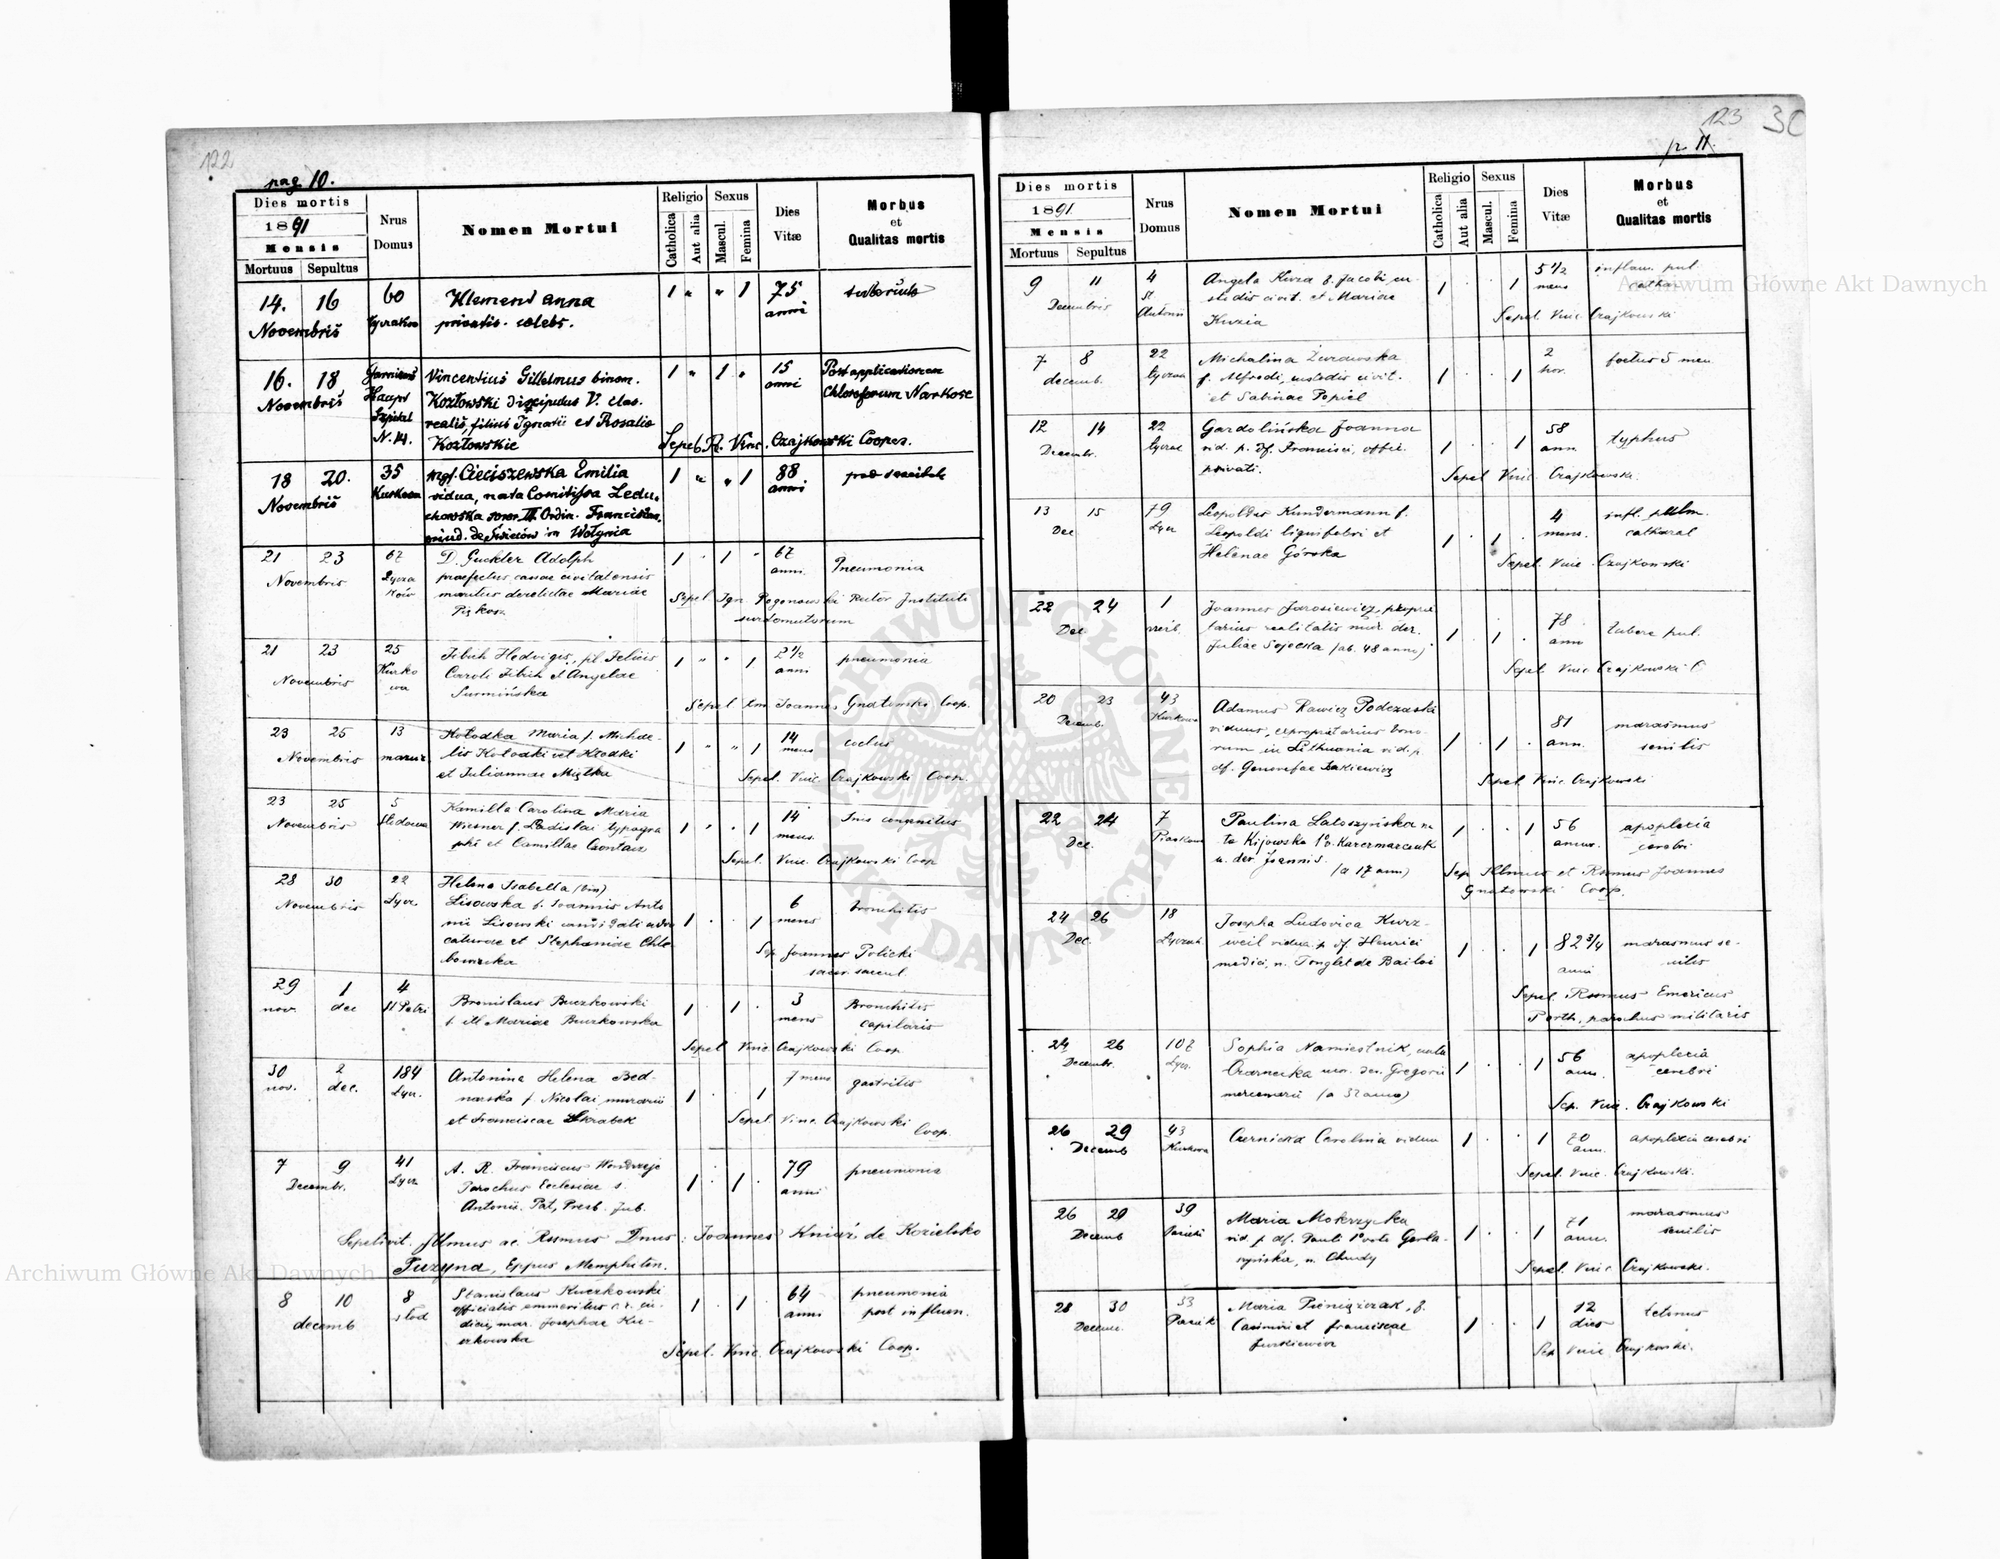 122
pag 10.
Dies mortis
1891
Mensis
Mortuus Sepultus
Nrus
Domus
Nomen Mortui
Religio
Catholica
Aut alia
Sexus
Mascul.
Femina
Dies
Vitæ
Morbus
et
Qualitas mortis
14. 16
Novembris
60
Klemens anna
privatis. celebs.
1 " " 1
75
anni
16. 18
Novembris
Szpital
N. 14.
Vincentius Gillelmus binom.
Kozłowski discipulus V. clas.
realis, filius Ignatii et Rosalie
Kozłowskie
1 " 1 "
15
anni
Post applicationem
Chloroforum Narkose
Sepel. R. Vinc. Czajkowski Cooper.
18 20.
Novembris
35
Kurkowa
Mgf. Cieciszewska Emilia
vidua, nata Comitissa Ledu-
chowska soror III Ordin. Franciskan.
in Wołynia
1 " " 1
88
anni
21 23
Novembris
67
Lycza
ków
D. Guckler Adolph
praefectus cassae civitatensis
maritus derelictae Mariae
Piskosz
1 " 1 "
67
anni
Pneumonia
Sepel. Ign. Rogonowski Rector Instituti
surdomutorum
21 23
Novembris
25
Kurko
wa
Jibich Hedvigis, fil. Felicis
Caroli Jibich et Angelae
Surmińska
1 " " 1
2 1/2
anni
pneumonia
Sepel Em. Joannes Gnatowski Coop.
23 25
Novembris
13
Kołodka Maria f. Micha-
et Juliannae Miałka
1 " " 1
14
mens
Sepel. Vinc. Czajkowski Coop.
23 25
Novembris
5
Kamilla Carolina Maria
Wiesner f. Ladislai typogra
phi et Camillae Czontarz
1 " " 1
14
mens.
congenitus
Sepel. Vinc. Czajkowski Coop
28 30
Novembris
22
Lycz.
Helena Isabella (bin)
Lisowska f. Joannis Anto
nii Lisowski candidati advo
caturae et Stephaniae Chle
bowska
1 . . 1
6
mens
bronchitis
Sep. Joannes Policki
sacer. saecul.
29 1
nov. dec
4
St Petri
Bronislaus Buczkowski
f. ill Mariae Buczkowska
1 . 1 .
3
mens
Bronchitis
capilaris
Sepel Vinc. Czajkowski Coop
30 2
nov. dec.
184
Lycz.
Antonina Helena Bed-
narska f. Nicolai murarii
et Franciscae Skrabek
1 . 1
7 mens
gastritis
Sepel. Vinc. Czajkowski
Coop.
7 9
Decembr.
41
Lycz
A. R. Franciscus
Parochus Ecclesiae s.
Antonii. Pat, Presb. Jub.
1 . 1 .
79
anni
pneumonia
Sepelivit. Illmus ac Rssmus Dnus: Joannes Kniaź de Kozielsko
Puzyna, Eppus Memphiten.
8 10
decemb
8
Stanislaus Kuczkowski
officialis emmeritus c. r. in-
dici, mar. Josephae Ku-
czkowska
1 . 1
64
anni
pneumonia
post influen.
Sepel. Vinc. Czajkowski Coop.
123 30
p. 11.
Dies mortis
1891
Mensis
Mortuus Sepultus
Nrus
Domus
Nomen Mortui
Religio
Catholica
Aut alia
Sexus
Mascul.
Femina
Dies
Vitæ
Morbus
et
Qualitas mortis
9 11
Decembris
4
St
Antonii
Angela Kuzia f. Jacobi cu-
stodis civit. et Mariae
Kuzia
1 . . 1
5 1/2
mens
inflam. pul.
cathar.
Sepel Vinc Czajkowski
7 8
decemb.
22
Michalina Żurawska
f. Alfredi, custodis civit.
et Sabinae Popiel
1 . . 1
2
hor.
foetus 5 men
12 14
Decembr.
22
Gardolińska Joanna
vid. p. df. Francisci, offic.
privati.
1 . . 1
58
ann.
typhus
Sepel Vinc. Czajkowski.
13 15
Dec
79
Lycz
Leopoldus Kundermann f.
Leopoldi lignifabri et
Helenae Górska
1 . 1 .
4
mens.
infl. pulm.
catharal
Sepel. Vinc. Czajkowski
22 24
Dec
1
Joannes Jarosiewicz, proprie
tarius realitatis mar. der.
Juliae Sojecka (ab. 48 annos)
1 . 1 .
78
ann
tuberc pul.
Sepel Vinc Czajkowski C
20 23
Decemb.
43
Kurkowa
Adamus Rawicz Podczaski
viduus, exproprietarius bono-
rum in Lithuania vid. p.
df. Genovefae Zakiewicz
1 . 1 .
81
ann.
marasmus
senilis
Sepel. Vinc Czajkowski
22 24
Dec.
7
Piaskowa
Paulina Latoszyńska na
ta Kijowska 1º v. Karczmarczuk
u. der. Joannis.
(a 17 ann)
1 . . 1
56
annor.
apoplexia
cerebri
Sep Illmus et Rssmus Joannes
Gnatowski Coop.
24 26
Dec.
18
Lyczak
Josepha Ludovica Kurz-
weil vidua p. df. Henrici
medici, n. Tonglet de Bailoi
1 . . 1
82 3/4
anni
marasmus se-
nilis
Sepel. Rssmus Emericus
Parth, parochus militaris
24 26
Decembr.
107
Lycz.
Sophia Namiestnik, nata
Czarnecka uxor. der. Gregorii
mercenarii (a 32 anno)
1 . . 1
56
ann.
apoplexia
cerebri
Sep. Vinc. Czajkowski
26 29
Decemb
43
Kurkowa
Czernicka Carolina vidua
1 . . 1
70
ann.
apoplexia cerebri
Sepel. Vinc. Czajkowski.
26 29
Decemb
39
Maria Mokrzycka
vid p. df. Pauli 1º voto Garba-
rzyńska, n. Chudy
1 . . 1
71
ann.
marasmus
senilis
Sepel. Vinc. Czajkowski.
28 30
Decem.
33
Maria Pieniążczak, f.
Casimiri et franciscae
Jurkiewicz
1 . . 1
12
dies
tetanus
Sep Vinc Czajkowski.
Archiwum Główne Akt Dawnych
Archiwum Główne Akt Dawnych
ARCHIWUM GŁÓWNE AKT DAWNYCH